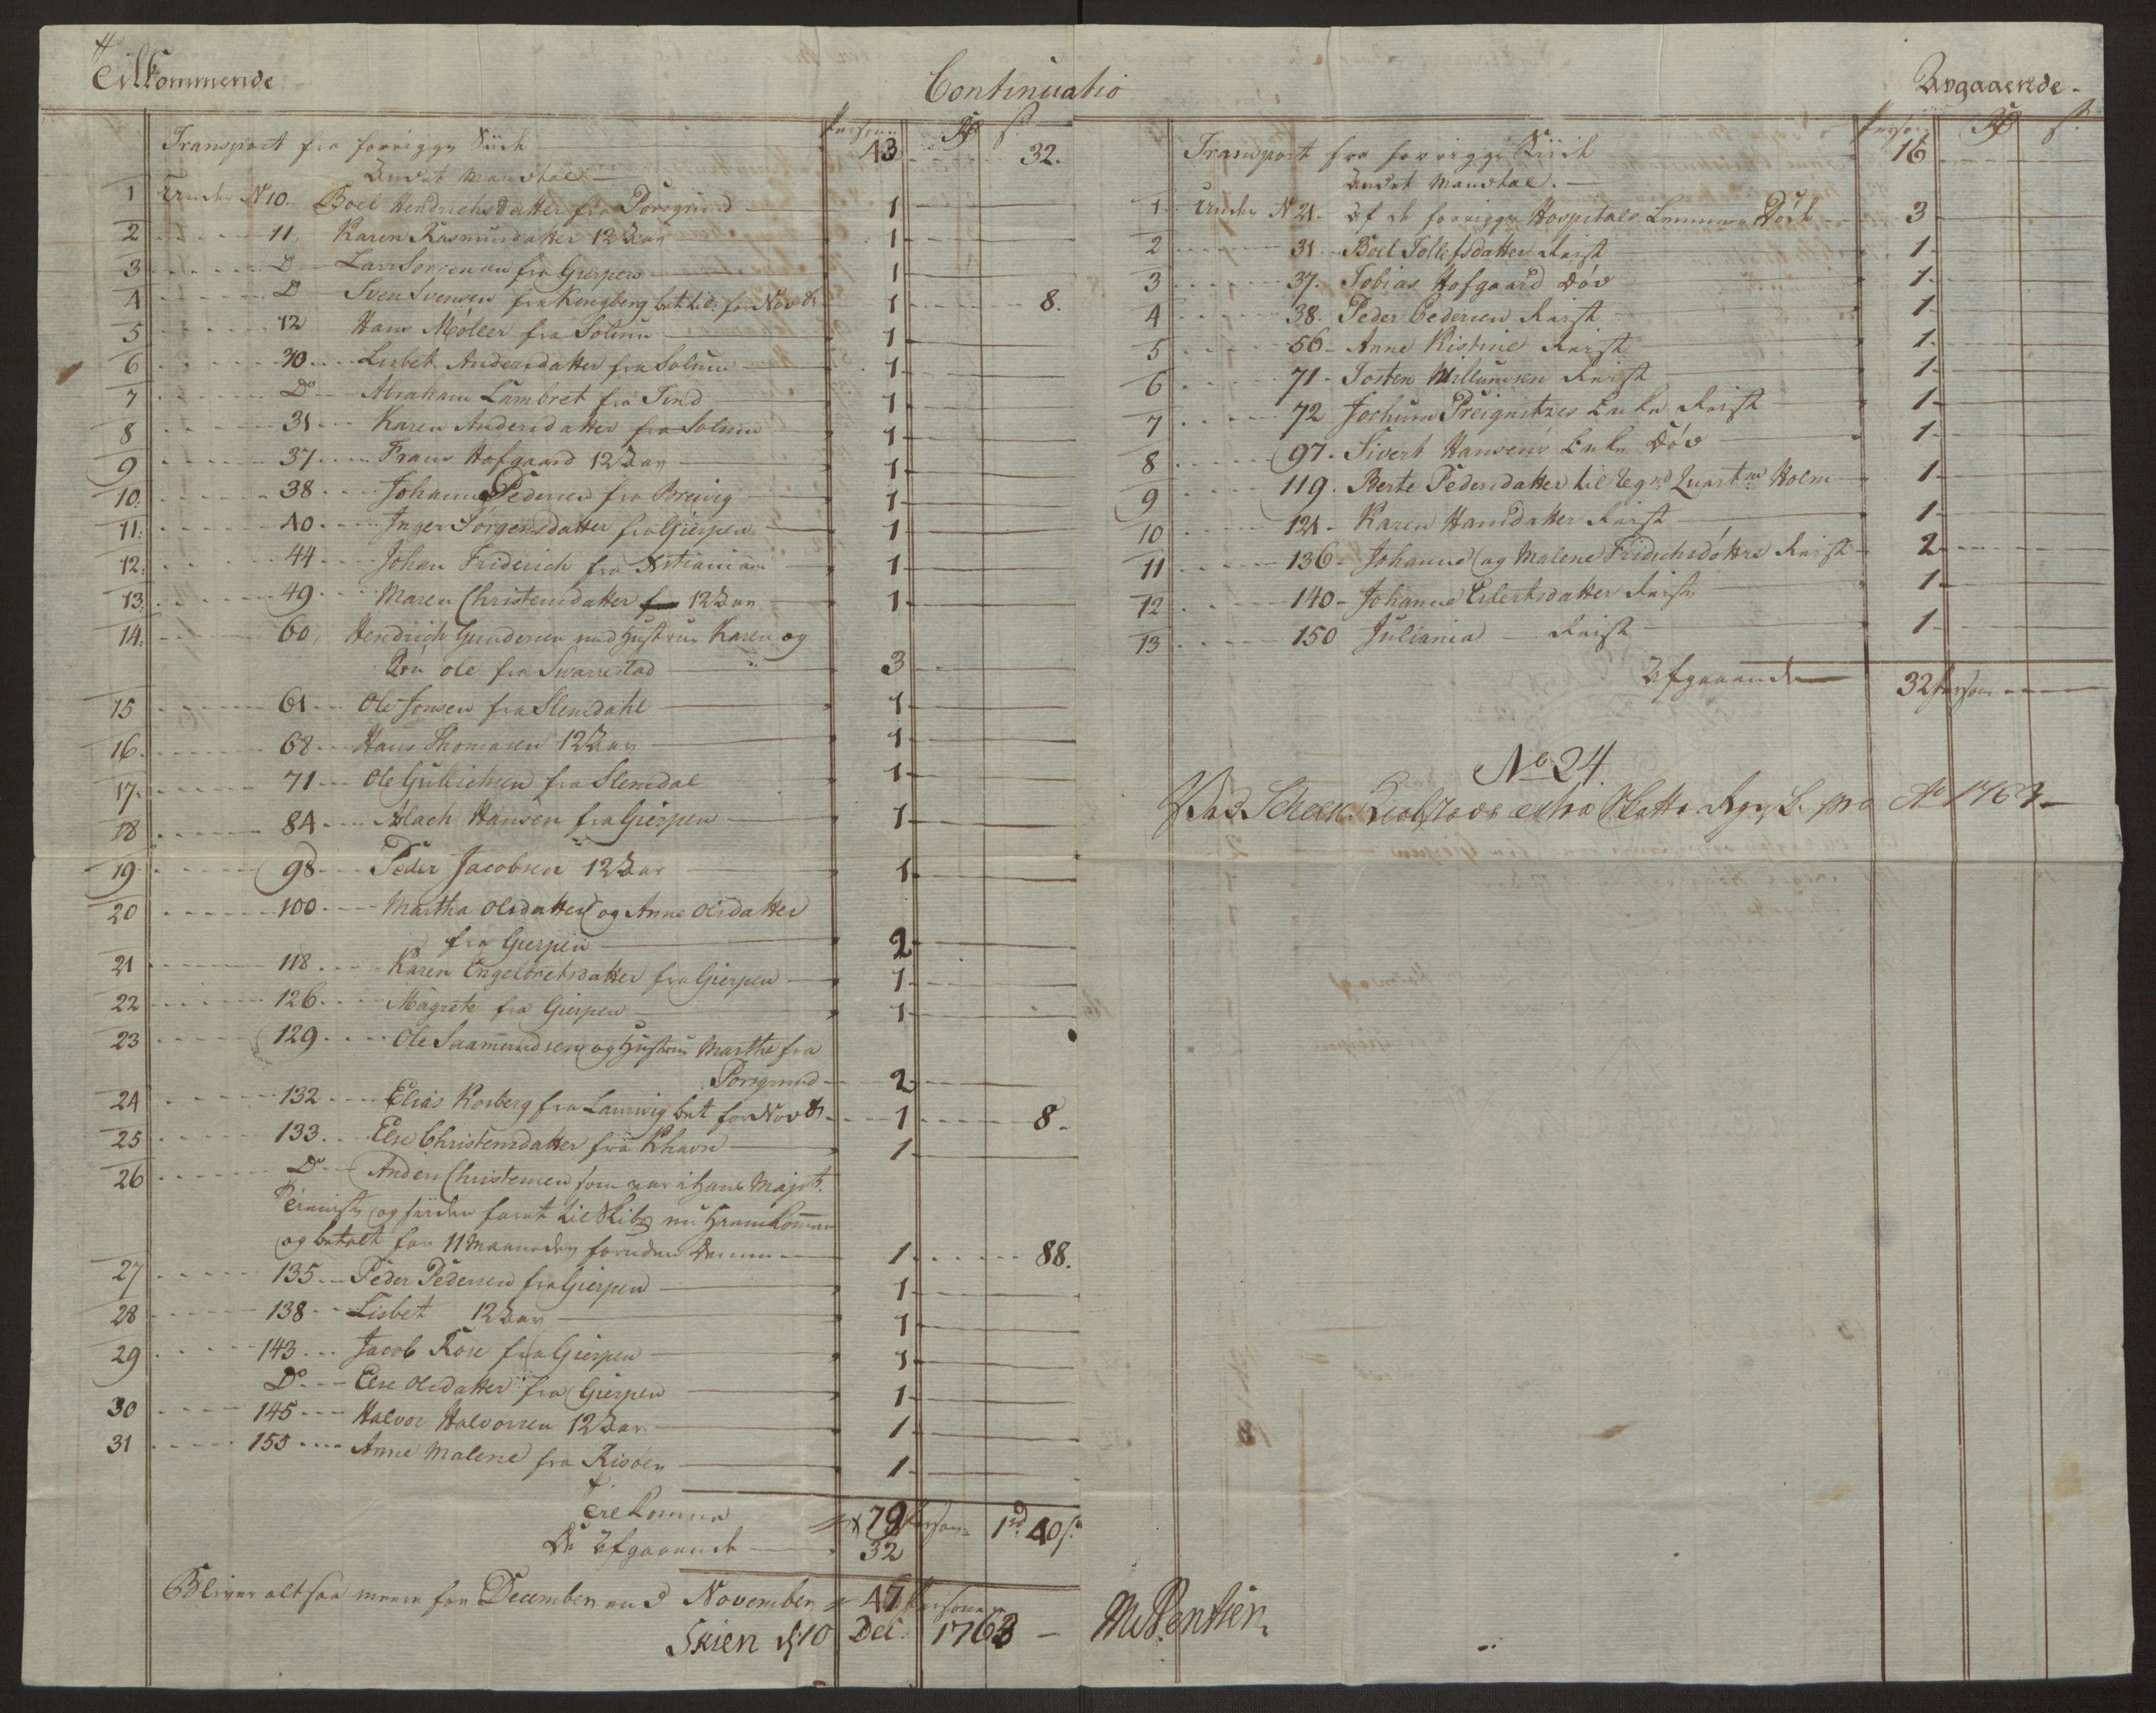 Tilkommende
Continuatio
Avgaaende
Personer Rd s.
Transport fra forrigge Siide 43 32.
Andet Mandtal
1 Under N 10. Boel Hendrichsdatter fra Porsgrund 1
2 11. Karen Rasmusdatter 12 Aar 1
3 D Lars Sørensen fra Gierpen 1
4 D Sven Svensen fra Kongberg bet. lid. for Nov br 1 8.
5 12 Hans Møller fra Solum 1
6 30 Lisbet Andersdatter fra Solum 1
7 Do Abraham Lambret fra Tind 1
8 31 Karen Andersdatter fra Solum 1
9 37 Frans Hofgaard 12 Aar 1
10. 38 Johannes Pedersen fra Brevig 1
11. 40 Inger Jørgensdatter fra Gierpen 1
12. 44 Johan Friderich fra Xstiania 1
13. 49 Maren Christensdatter 12 Aar 1
14. 60. Hendrich Gundersen med Hustrue Karen og
Søn Ole fra Svarrestad 3
15 61 Ole Jonsen fra Slemdahl 1
16. 68 Hans Thomasen 12 Aar 1
17. 71 Ole Gullichsen fra Slemdal 1
18 84 Aslach Hansen fra Gierpen 1
19 98 Peder Jacobsen 12 Aar 1
20 100 Martha Olsdatter og Anne Olsdatter
fra Gierpen 2
21 118 Karen Engelbretsdatter fra Gierpen 1
22 126 Magrete fra Gierpen 1
23 129 Ole Saamundsen og Hustrue Marthe fra
Porsgrund 2
24 132 Elias Rosberg fra Laurvig bet for Nov br 1 8.
25 133 Else Christensdatter fra Khavn 1
26 Do Anders Christensen som var i Hans Majst.
Tieniste og siden faret til Skibs nu Hiemkommen
og betalt for 11 Maaneder foruden Denne 1 88.
27 135 Peder Pedersen fra Gierpen 1
28 138 Lisbet 12 Aar 1
29 143 Jacob Rose fra Gierpen 1
Do Else Olsdatter fra Gierpen 1
30 145 Halvor Halvorsen 12 Aar 1
31 155 Anne Malene fra Risøen 1
Tilkomne 79 Person 1rd 40 s.
De Afgaaende 32
Bliver altsaa meere for December end November 47 Personer
Skien d. 10 Dec. 1763
Person Rd s.
Transport fra forrigge Siide 16
Andet Mandtal.
1 Under N 21. Af de forrigge Hospitals Lemmer Død 3
2 31 Boel Tollefsdatter Reist 1
3 37. Tobias Hofgaard Døv 1
4 38. Peder Pedersen Reist 1
5 56 Anne Kistine Reist 1
6 71 Torsten Willumsen Reist 1
7 72 Jochum Preignitzes Enke Reist 1
8 97. Sivert Hansens Enke Døv 1
9 119. Berte Pedersdatter til Regmd Quartmr Holm 1
10 121 Karen Hansdatter Reist 1
11 136 Johanne og Malene Fridichsdøttre Reist 2
12 140 Johanne Eilertsdatter Reist 1
13 150 Juliania Reist 1
Afgaaende 32 Person
No 24.
Ved Scheen Kiøbstæds extra Skatte Rgsk. pro Ao 1764